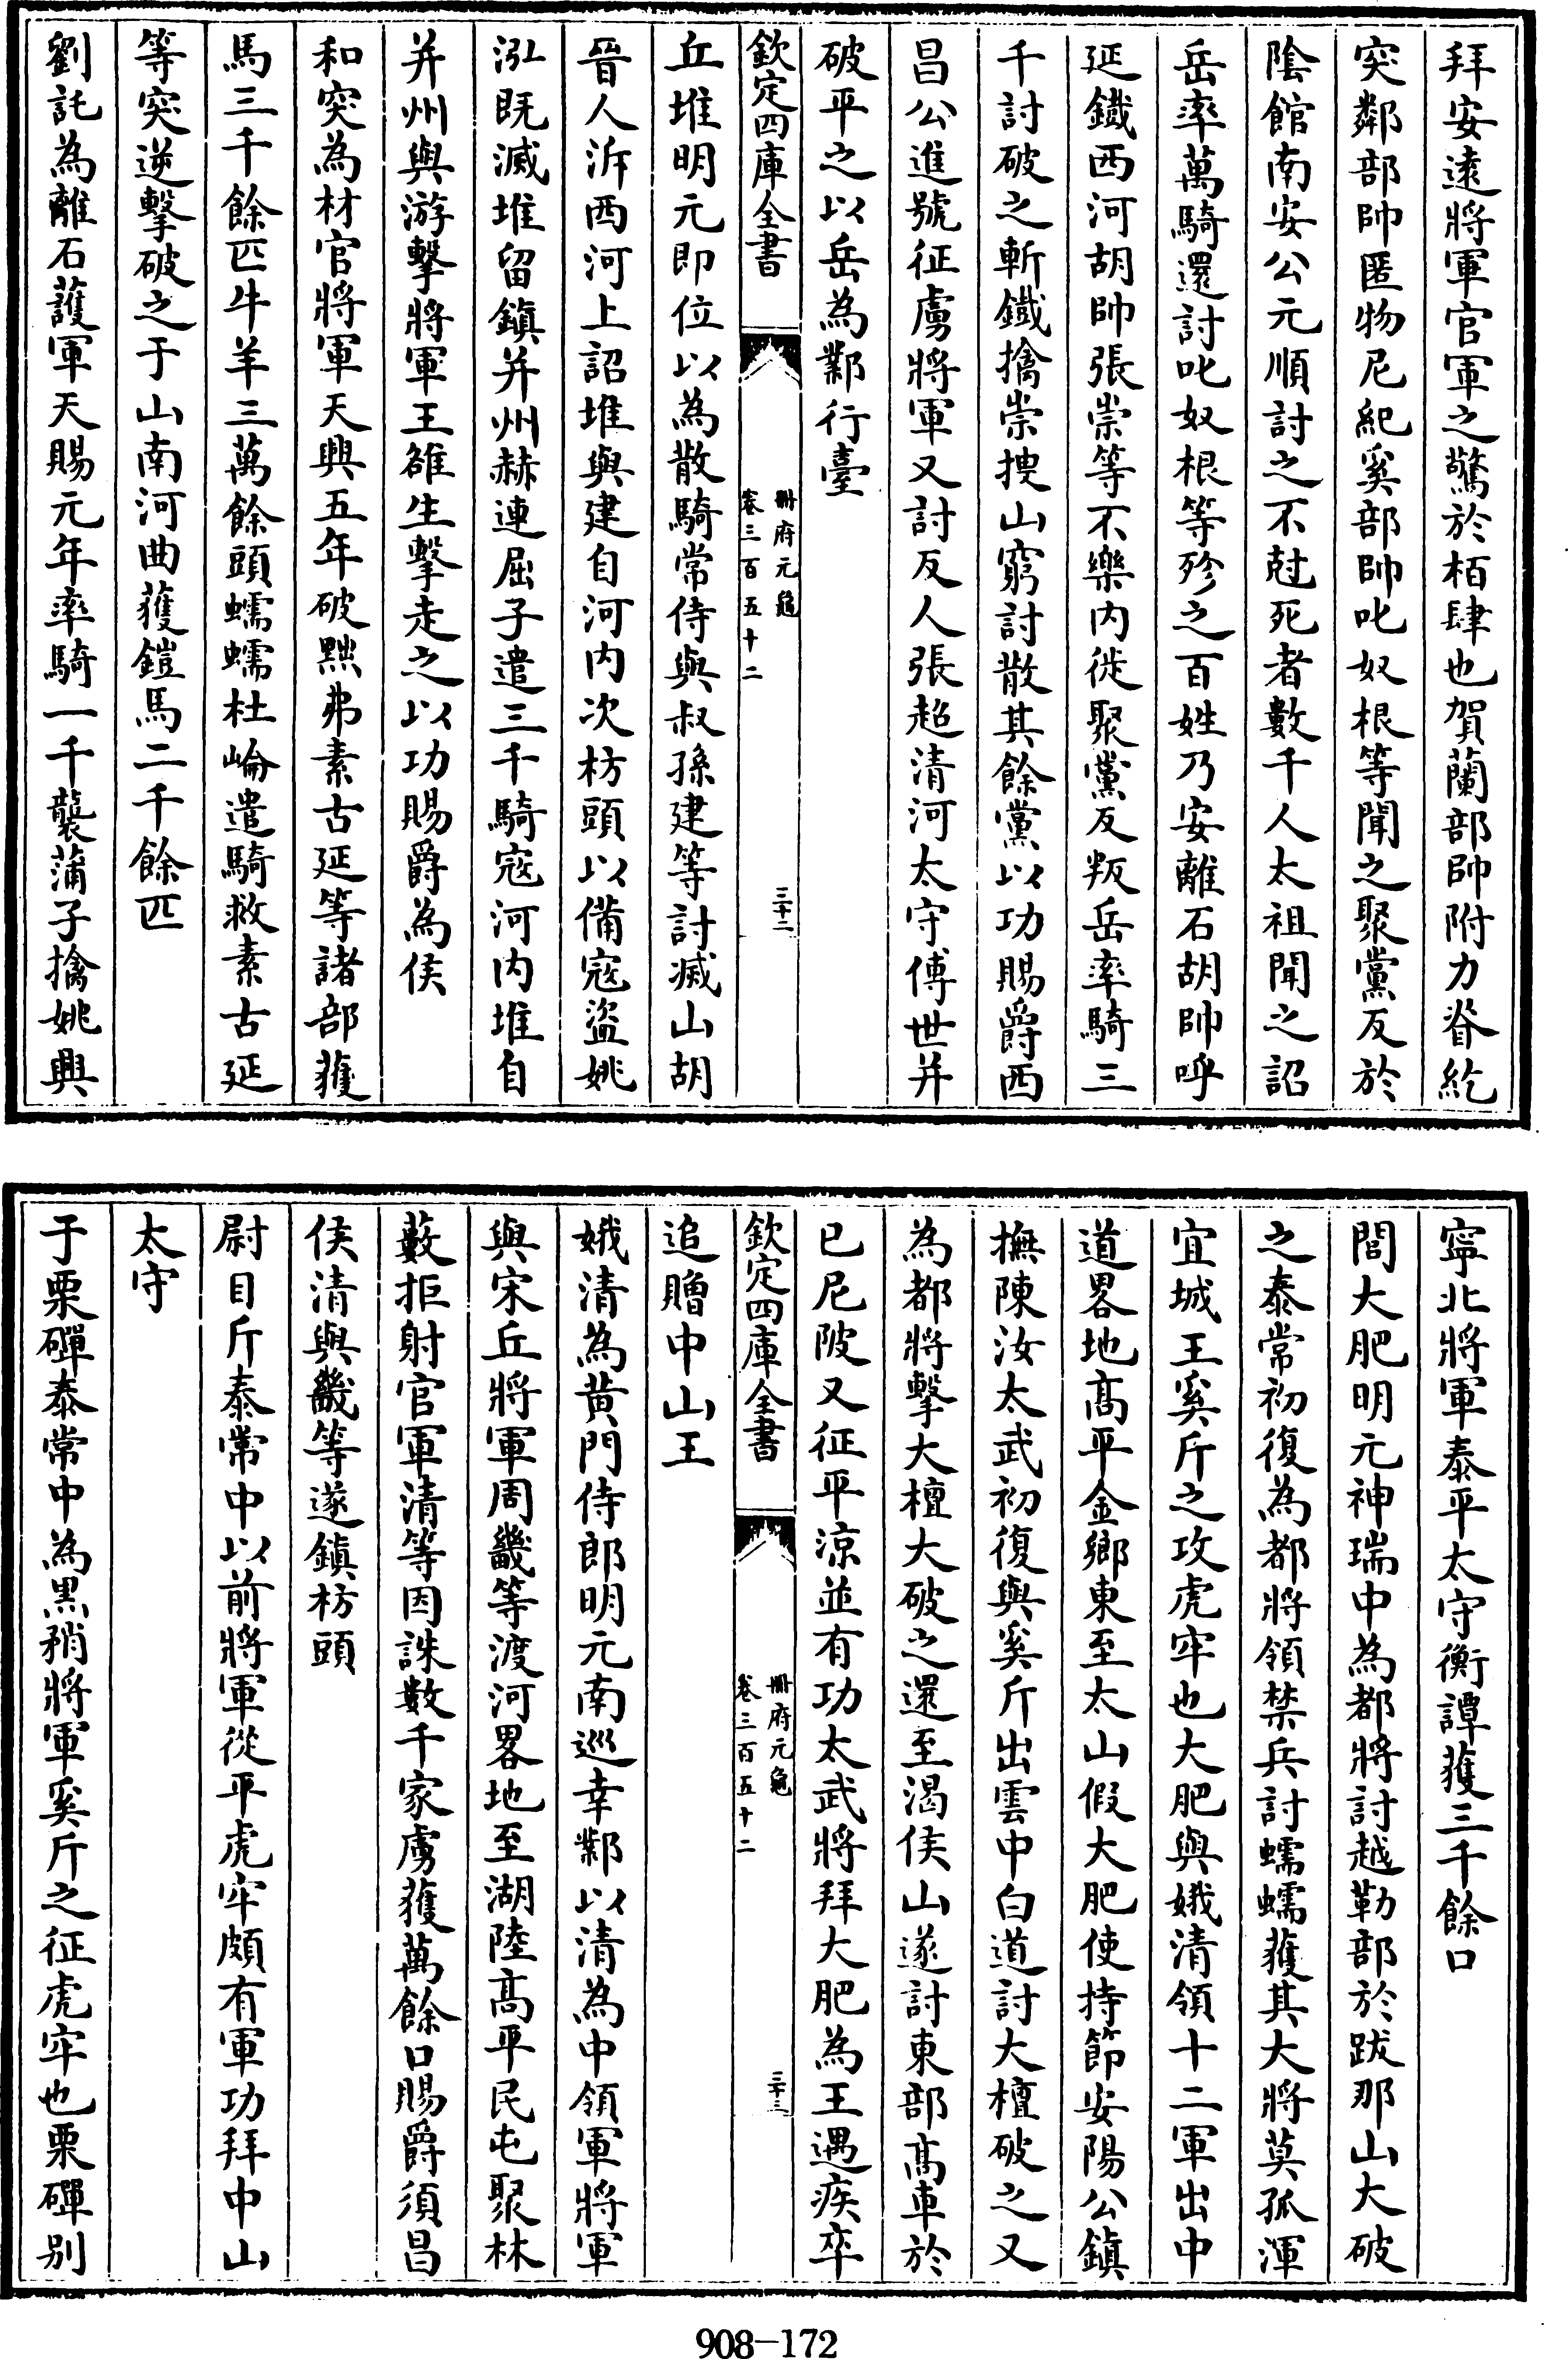 拜安遠將軍官軍之驚於栢肆也賀蘭部帥附力眷紇
突鄰部帥匿物尼紀奚部帥叱奴根等聞之聚黨反於
陰館南安公元順討之不尅死者數千人太祖聞之詔
岳率萬騎還討叱奴根等殄之百姓乃安離石胡帥呼
延鐵西河胡帥張崇等不樂内徙聚黨反叛岳率騎三
千討破之斬鐵擒崇搜山窮討散其餘黨以功賜爵西
昌公進號征虜將軍又討反人張超清河太守傅世并
破平之以岳為鄴行臺
欽定四庫全書
冊府元龜
卷三百五十二
三十二
丘堆明元即位以為散騎常侍與叔孫建等討滅山胡
晉人泝西河上詔堆與建自河内次枋頭以備寇盜姚
泓既滅堆留鎮并州赫連屈子遣三千騎寇河内堆自
并州與游擊將軍王雒生擊走之以功賜爵為侯
和突為材官將軍天興五年破黜弗素古延等諸部獲
馬三千餘匹牛羊三萬餘頭蠕蠕杜崘遣騎救素古延
等突逆擊破之于山南河曲獲鎧馬二千餘匹
劉託為離石護軍天賜元年率騎一千襲蒲子擒姚興
寧北將軍泰平太守衡譚獲三千餘口
閭大肥明元神瑞中為都將討越勒部於跋那山大破
之泰常初復為都將領禁兵討蠕蠕獲其大將莫孤渾
宜城王奚斤之攻虎牢也大肥與娥清領十二軍出中
道畧地高平金鄉東至太山假大肥使持節安陽公鎮
撫陳汝太武初復與奚斤出雲中白道討大檀破之又
為都將擊大檀大破之還至渴侯山遂討東部高車於
已尼陂又征平涼並有功太武將拜大肥為王遇疾卒
欽定四庫全書
冊府元龜
卷三百五十二
三十三
追贈中山王
娥清為黄門侍郎明元南巡幸鄴以清為中領軍將軍
與宋丘將軍周畿等渡河畧地至湖陸高平民屯聚林
藪拒射官軍清等因誅數千家虜獲萬餘口賜爵須昌
侯清與畿等遂鎮枋頭
尉目斤泰常中以前將軍從平虎牢頗有軍功拜中山
太守
于栗磾泰常中為黑矟將軍奚斤之征虎牢也栗磾别
908-172